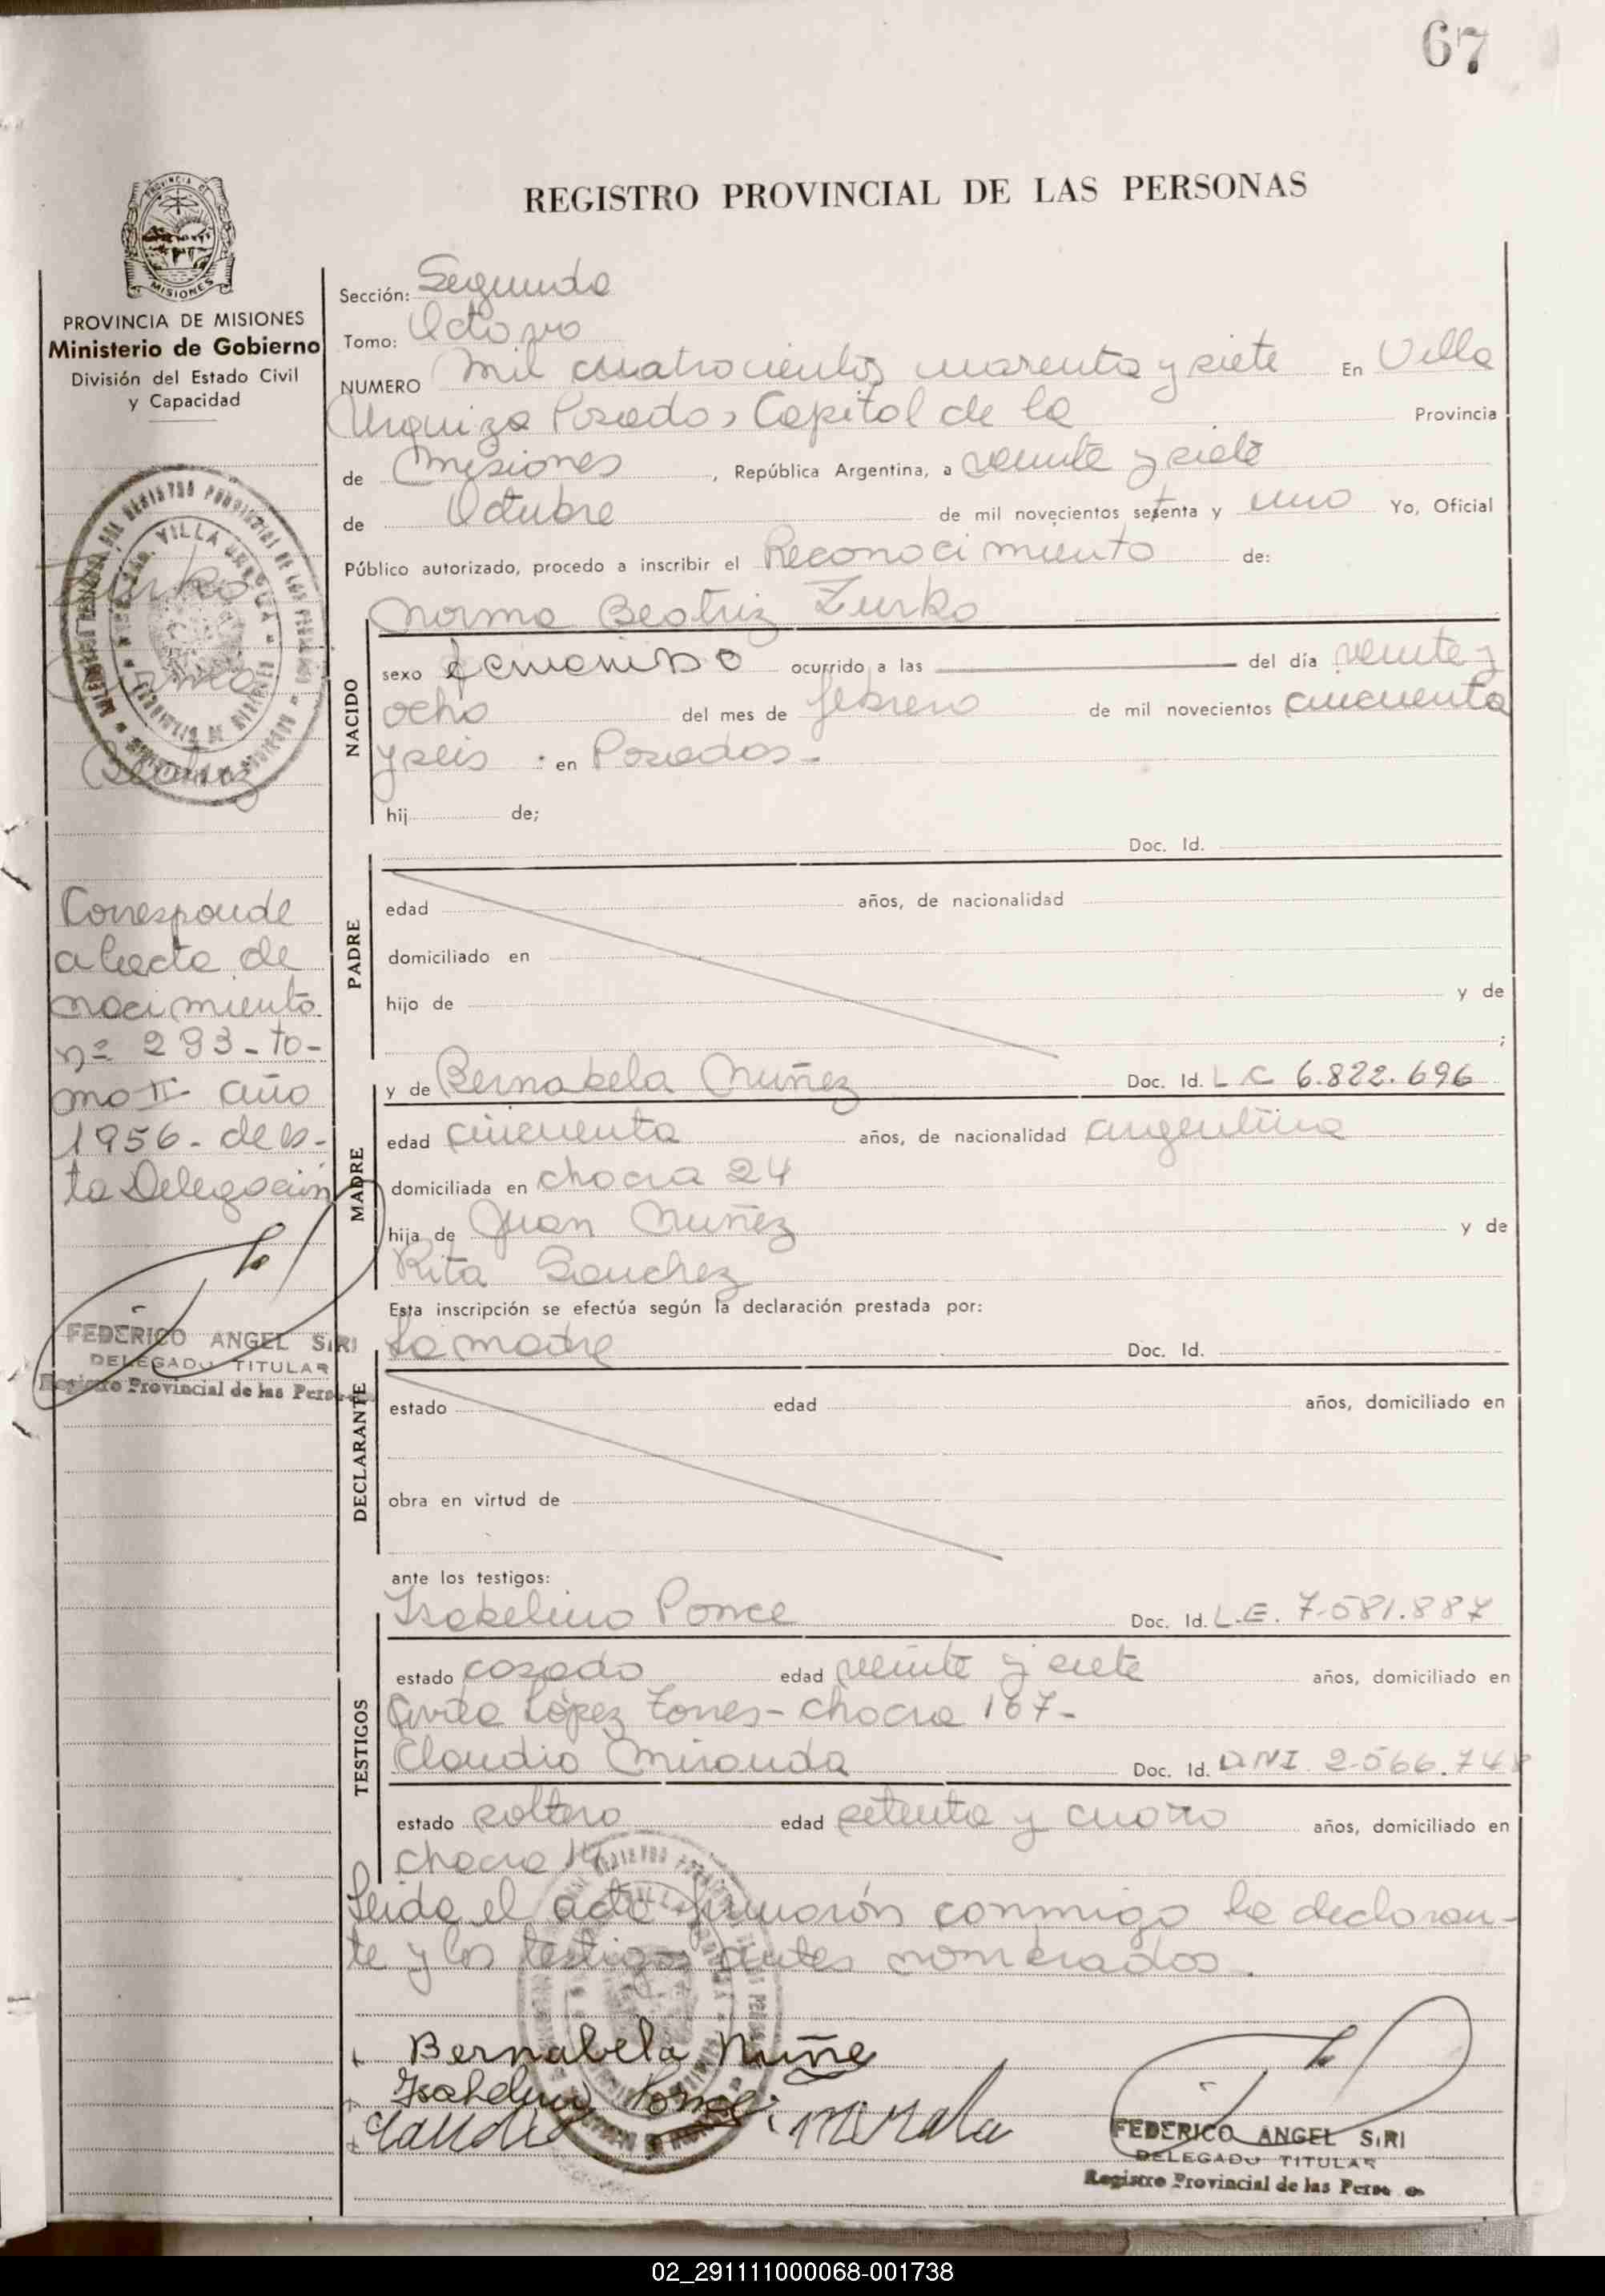 67
REGISTRO PROVINCIAL DE LAS PERSONAS
PROVINCIA DE MISIONES
Ministerio de Gobierno
División del Estado Civil
y Capacidad
Zurko
Norma
Beatriz
Corresponde
al acta de
nacimiento
nº 293 - to-
mo II año
1956 - de es-
ta Delegación
FEDERICO ANGEL SIRI
DELEGADO TITULAR
Registro Provincial de las Perso
Sección: Segunda
Tomo: Octavo
NUMERO Mil cuatrocientos cuarenta y siete En Villa
Urquiza Posadas, Capital de la Provincia
de Misiones, República Argentina, a veinte y siete
de Octubre de mil novecientos setenta y uno Yo, Oficial
Público autorizado, procedo a inscribir el Reconocimiento de:
Norma Beatriz Zurko
NACIDO
sexo femenino ocurrido a las del día veinte y
ocho del mes de febrero de mil novecientos cincuenta
y seis en Posadas -
hij de;
Doc. Id.
PADRE
edad años, de nacionalidad
domiciliado en
hijo de y de
;
MADRE
y de Bernabela Nuñez Doc. Id. L C 6.822.696
edad cincuenta años, de nacionalidad argentina
domiciliada en chacra 24
hija de Juan Nuñez y de
Rita Sanchez
Esta inscripción se efectúa según la declaración prestada por:
La madre Doc. Id.
DECLARANTE
estado edad años, domiciliado en
obra en virtud de
ante los testigos:
Isabelino Ponce Doc. Id. L.E. 7.581.887
TESTIGOS
estado casado edad veinte y siete años, domiciliado en
Avda López Torres - chacra 167 -
Claudio Miranda Doc. Id. DNI 2.566.748
estado soltero edad setenta y cuatro años, domiciliado en
chacra
Leida el acta firmarón conmigo la declaran-
te y los testigos antes nombrados.
Bernabela Nuñe
Isabelino Ponce
Claudio
FEDERICO ANGEL SIRI
DELEGADO TITULAR
Registro Provincial de las Perso
02_291111000068-001738